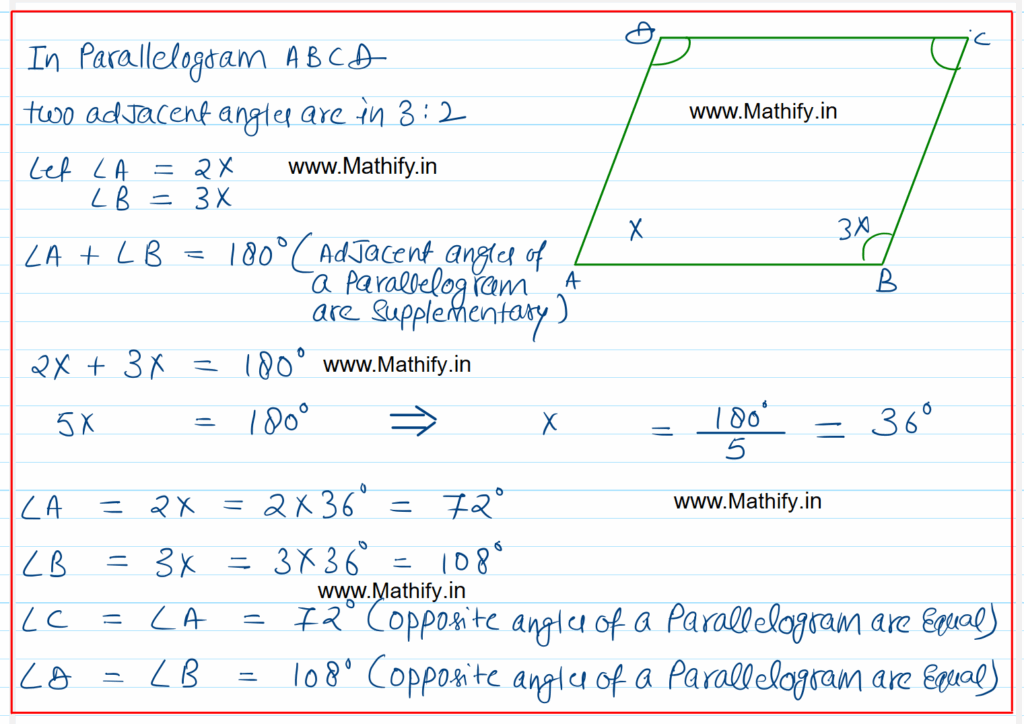 In Parallelogram ABCD
two adjacent angles are in 3:2
Let ∠A = 2x
∠B = 3x
www.Mathify.in
∠A + ∠B = 180° (Adjacent angles of
a Parallelogram
are Supplementary)
2x + 3x = 180°
www.Mathify.in
5x = 180° ⇒ x = 180°/5 = 36°
∠A = 2x = 2×36° = 72°
www.Mathify.in
∠B = 3x = 3×36° = 108°
www.Mathify.in
∠C = ∠A = 72° (opposite angles of a Parallelogram are Equal)
∠D = ∠B = 108° (opposite angles of a Parallelogram are Equal)
D
C
www.Mathify.in
x
3x
A
B